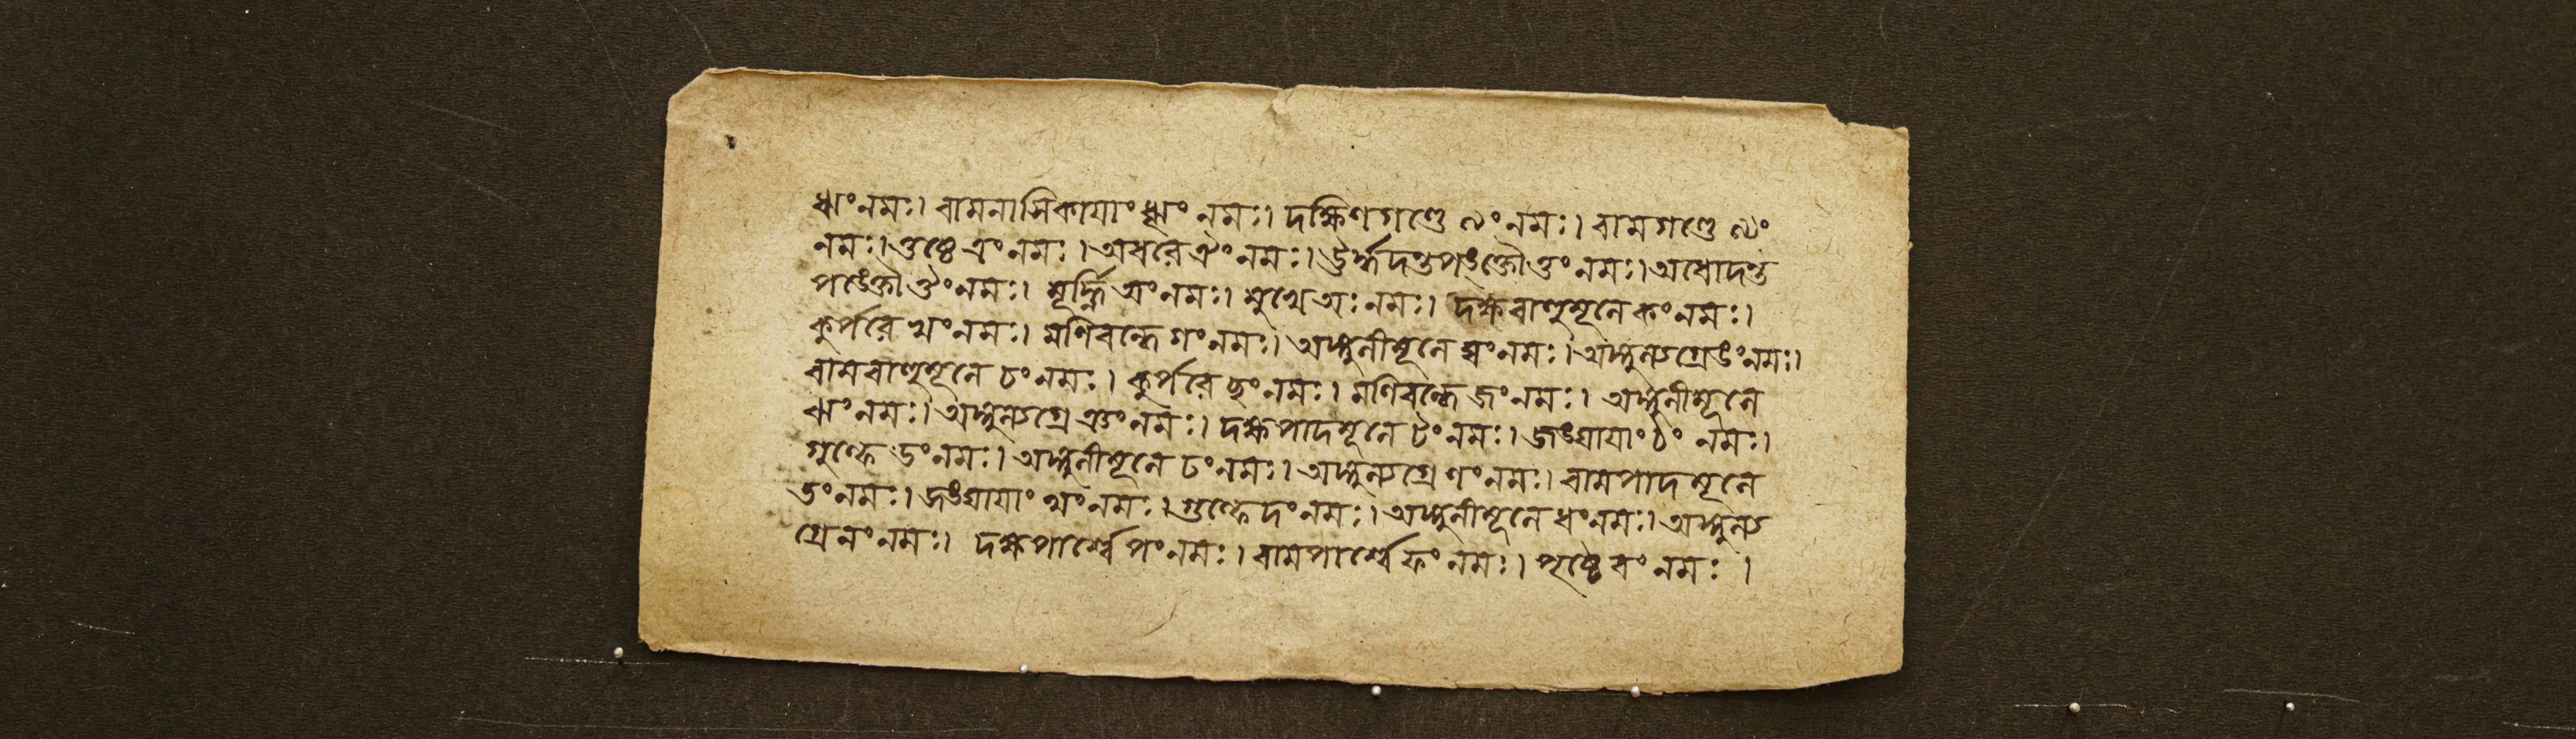 ঋং নমঃ। বামনাসিকাযাং ৠং নমঃ। দক্ষিণগণ্ডে ঌং নমঃ। বামগণ্ডে ৡং
নমঃ। ওষ্ঠে এং নমঃ। অধরে ঐং নমঃ। ঊর্দ্ধদন্তপঙক্তৌ ওং নমঃ। অধোদন্ত
পঙক্তৌ ঔং নমঃ। মূর্দ্ধ্নি অং নমঃ। মুখে অঃ নমঃ। দক্ষবাহুমূলে কং নমঃ।
কুর্পরে খং নমঃ। মণিবন্ধে গং নমঃ। অঙ্গুলীমূলে ঘং নমঃ। অঙ্গুল্যগ্রে ঙং নমঃ।
বামবাহুমূলে চং নমঃ। কুর্পরে ছং নমঃ। মণিবন্ধে জং নমঃ। অঙ্গুলীমূলে
ঝং নমঃ। অঙ্গুল্যগ্রে ঞং নমঃ। দক্ষপাদমূলে টং নমঃ। জঙঘাযাং ঠং নমঃ।
গুল্ফে ডং নমঃ। অঙ্গুলীমূলে ঢং নমঃ। অঙ্গুল্যগ্রে ণং নমঃ। বামপাদমূলে
তং নমঃ। জঙঘাযাং থং নমঃ। গুল্ফে দং নমঃ। অঙ্গুলীমূলে ধং নমঃ। অঙ্গুল্য
গ্রে নং নমঃ। দক্ষপার্শ্বে পং নমঃ। বামপার্শ্বে ফং নমঃ। পৃষ্ঠে বং নমঃ।